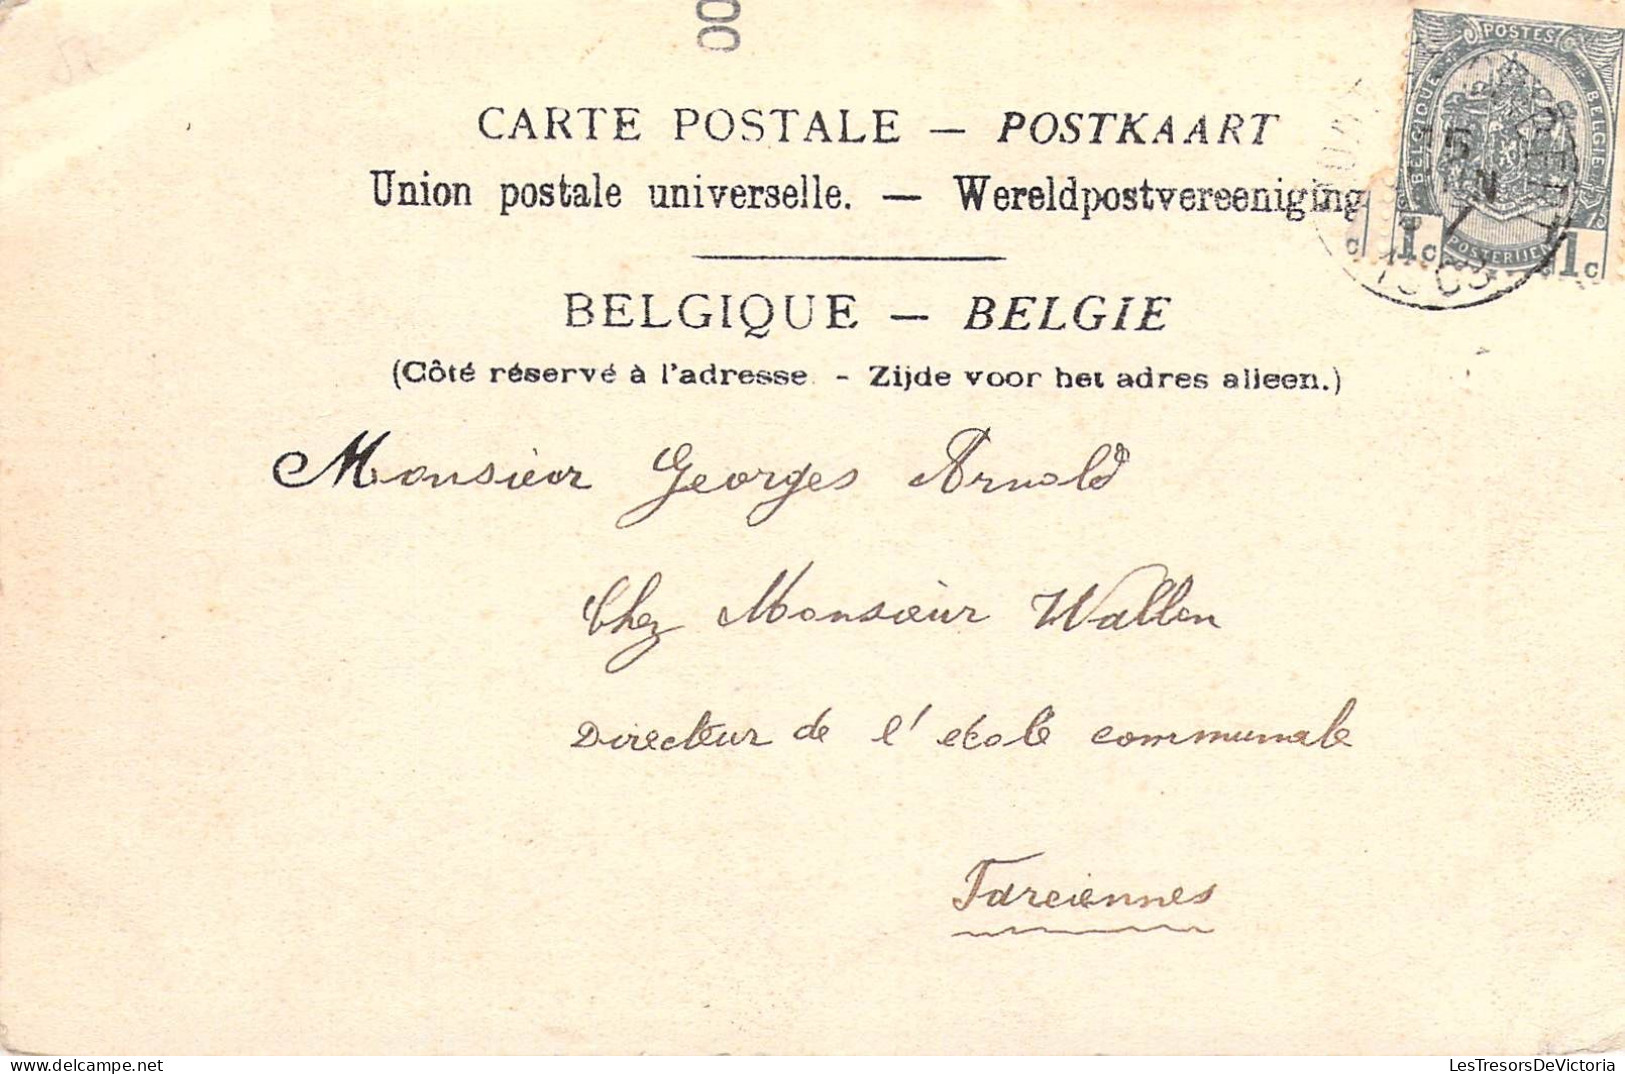 CARTE POSTALE — POSTKAART
Union postale universelle. — Wereldpostvereeniging
BELGIQUE — BELGIE
(Côté réservé à l'adresse. - Zijde voor het adres alleen.)
POSTES
BELGIQUE
BELGIE
POSTERIJEN
1c 1c
Monsieur Georges Arnold
Chez Monsieur Wallen
Directeur de l'école communale
Farciennes
LesTresorsDeVictoria